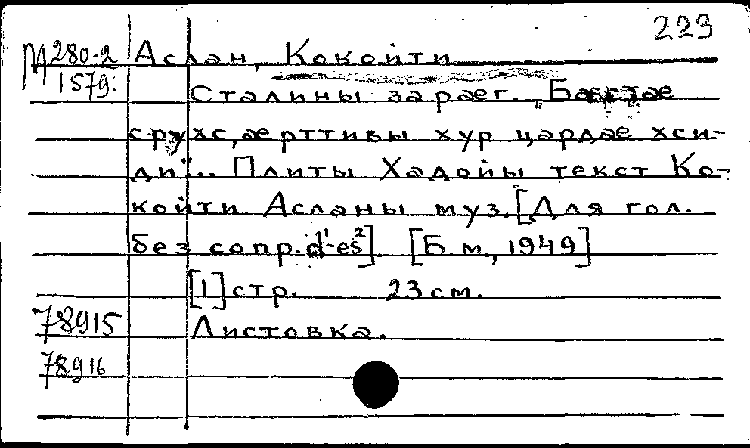 223
М 280-2
1579:
Аслан, Кокойти
Сталины зарæг. „Бæстæ
срухс, æрттивы хур цардæ хси-
ди"... Плиты Хадойы текст Ко-
койти Асланы муз. [Для гол.
без сопр. d¹-es²]. [Б. м., 1949]
[1] стр. 23 см.
78915 Листовка.
78916